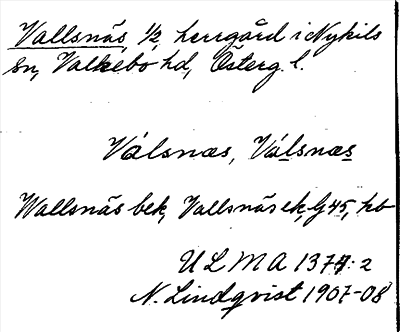 Vallsnäs, 1/2, herrgård i Nykils
sn, Valkebo hd, Österg. l.
Válsnæs, Válsnæs
Wallsnäs bek, Vallsnäs ek, G 45, kb
ULMA 1374:2
N. Lindqvist 1907-08